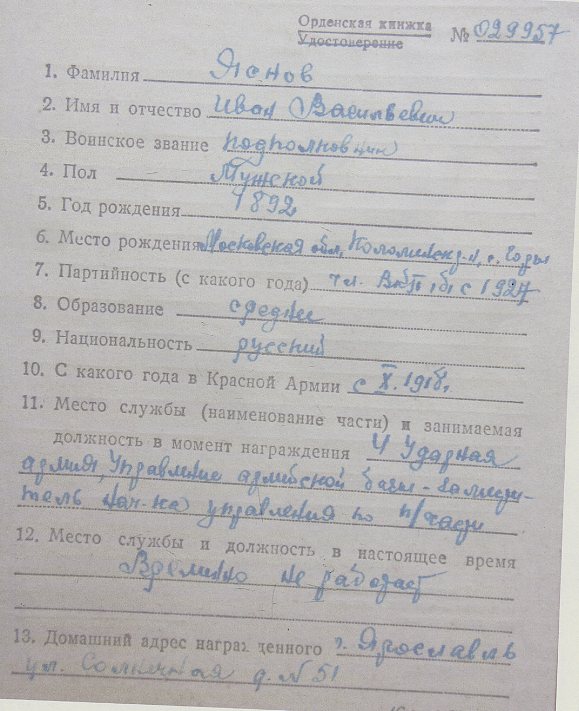 Орденская книжка
Удостоверение № 029957
1. Фамилия Яснов
2. Имя и отчество Иван Васильевич
3. Воинское звание подполковник
4. Пол Мужской
5. Год рождения 1892
6. Место рождения Московская обл, Коломенск. р-н, с. Городы
7. Партийность (с какого года) чл. ВКП(б) с 1927
8. Образование среднее
9. Национальность русский
10. С какого года в Красной Армии с X. 1918.
11. Место службы (наименование части) и занимаемая
должность в момент награждения 4 Ударная
армия, Управление армейской базы - Замести-
тель нач-ка управления по п/части
12. Место службы и должность в настоящее время
Временно не работает
13. Домашний адрес награжденного г. Ярославль
ул. Солнечная д. N 51